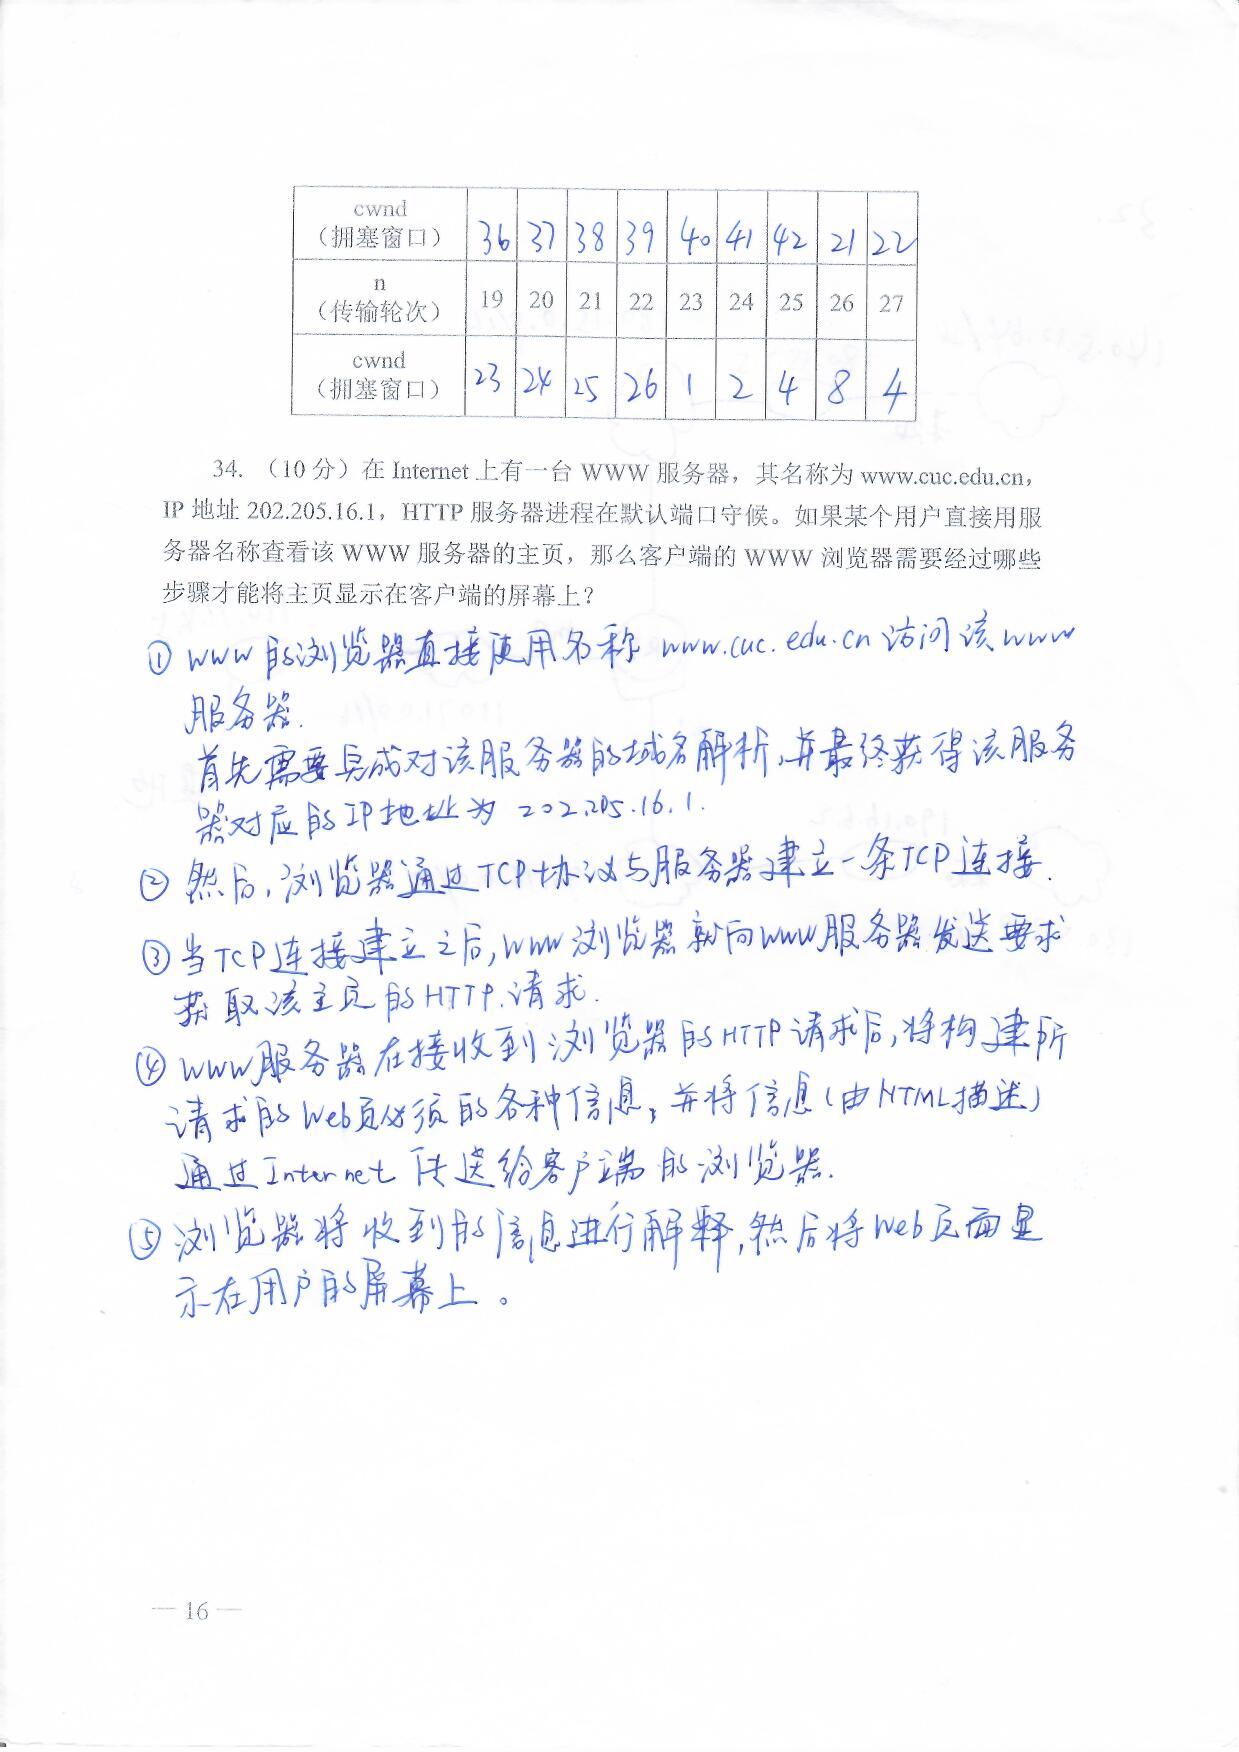 cwnd
（拥塞窗口） 36 37 38 39 40 41 42 21 22
n
（传输轮次） 19 20 21 22 23 24 25 26 27
cwnd
（拥塞窗口） 23 24 25 26 1 2 4 8 4
34. （10 分）在 Internet 上有一台 WWW 服务器，其名称为 www.cuc.edu.cn，
IP 地址 202.205.16.1，HTTP 服务器进程在默认端口守候。如果某个用户直接用服
务器名称查看该 WWW 服务器的主页，那么客户端的 WWW 浏览器需要经过哪些
步骤才能将主页显示在客户端的屏幕上？
① www的浏览器直接使用名称 www.cuc.edu.cn 访问该 www
服务器.
首先需要完成对该服务器的域名解析,并最终获得该服务
器对应的IP地址为 202.205.16.1.
② 然后,浏览器通过TCP协议与服务器建立一条TCP连接.
③ 当TCP连接建立之后,www浏览器就向www服务器发送要求
获取该主页的HTTP.请求.
④ www服务器在接收到浏览器的HTTP请求后,将构建所
请求的Web页必须的各种信息,并将信息(由HTML描述)
通过Internet传送给客户端的浏览器.
⑤ 浏览器将收到的信息进行解释,然后将Web页面显
示在用户的屏幕上。
— 16 —